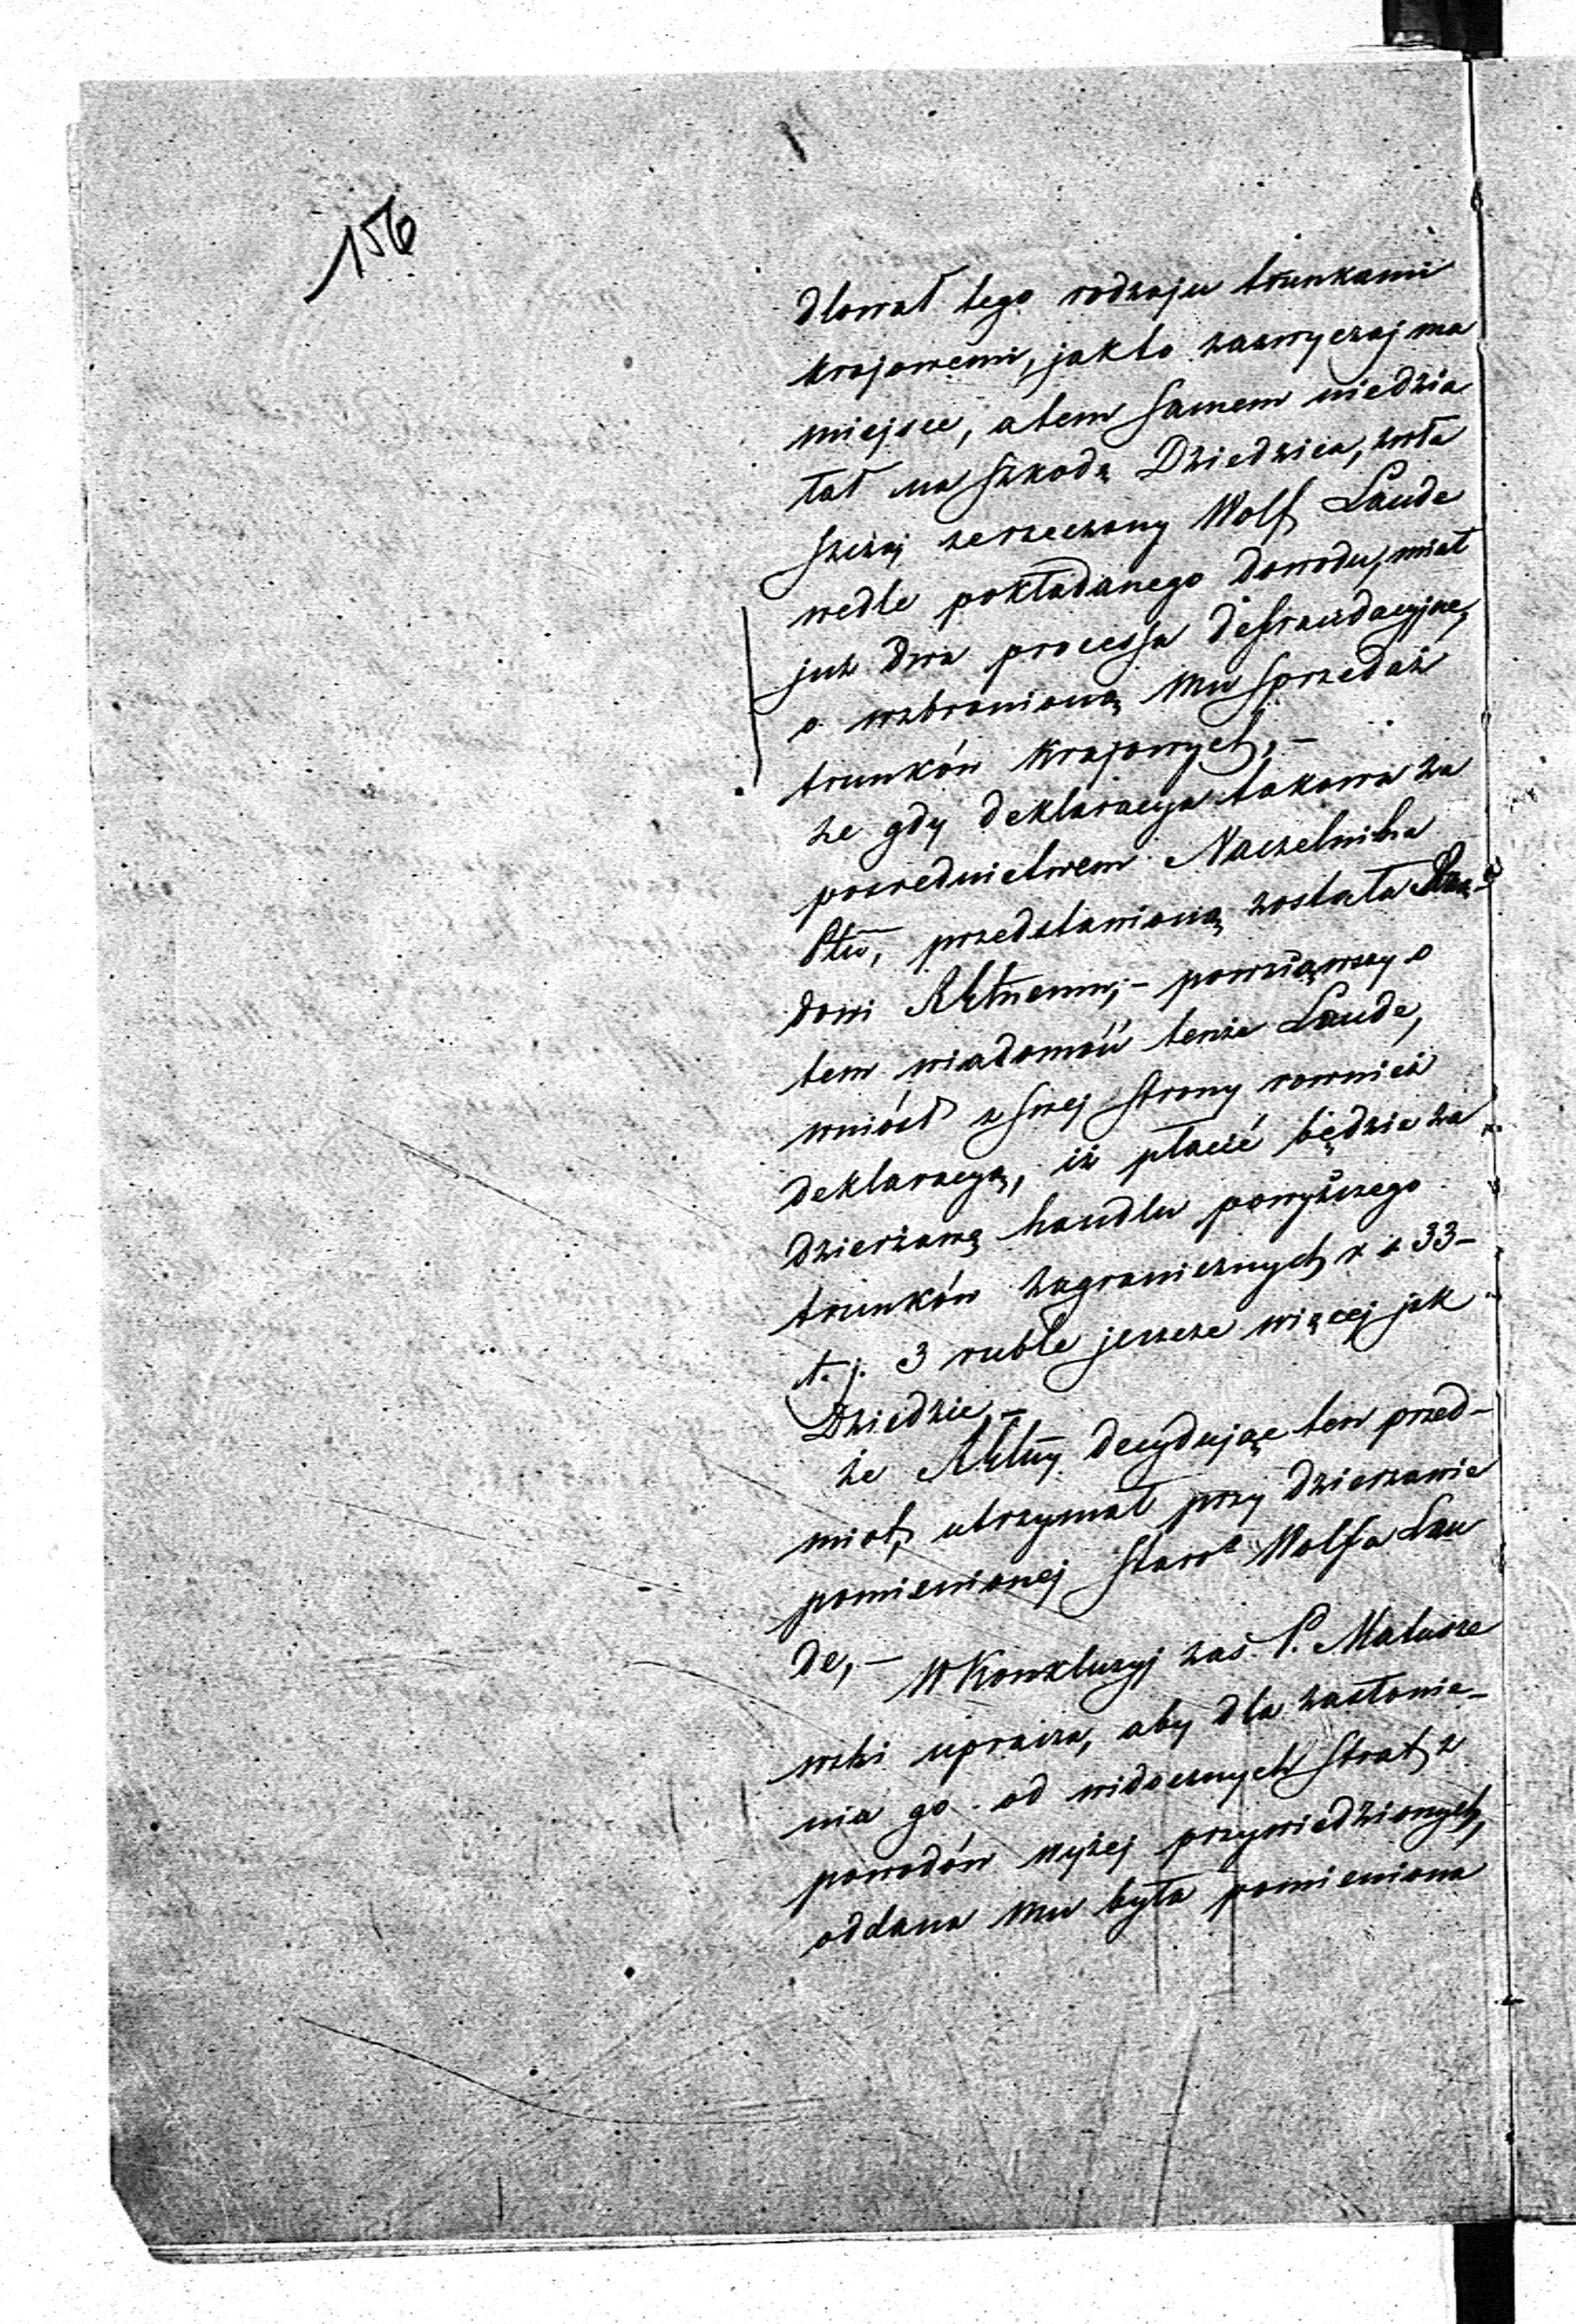 156
dlował tego rodzaju trunkami
krajowemi, jak to zazwyczaj ma
miejsce, a tem samem niedzia
łał na szkodę Dziedzica, zwła
szcza, że rzeczony Wolf Laude
wedle pokładanego dowodu, miał
już dwa processa defraudacyjne,
o wzbronioną mu sprzedaż
trunków krajowych, –
że gdy deklaracya takowa za
pośrednictwem Naczelnika
Ptu, przedstawioną została Rzą-
dowi Mtnemu; – powziąwszy o
tem wiadomość tenże Laude,
wniósł z swej strony rownież
deklaracyą, iż płacić będzie za
dzierżawę handlu powyższego
trunków zagranicznych rs 33 –
t. j. 3 ruble jeszcze więcej jak
Dziedzic –
że decydując ten przed-
miot, utrzymał przy dzierżawie
pomienionej Staroz Wolfa Lau
de, – W Konkluzyj zaś P. Matusze
wski uprasza, aby dla zasłonie-
nia go od widocznych strat, z
powodów wyżej przywiedzionych,
oddana mu była pomieniona